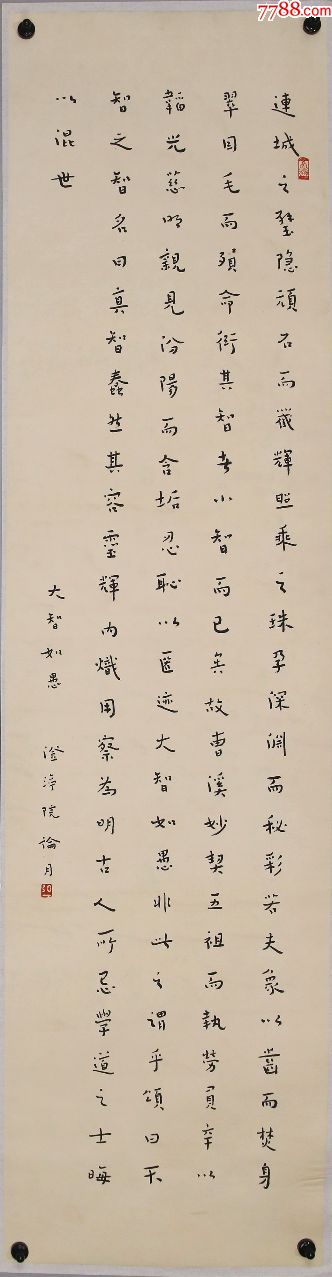 7788.com
連城之璧隐頑石而輝照乘之珠孕深渊而秘彩若夫象以齒而焚身
翠因毛而殞命衒其智者小智而已矣故曹溪妙契五祖而執勞負辛以
韜光慈明親見汾陽而含垢忍恥以匿迹大智如愚非此之謂乎頌曰不
智之智名曰真智蠢然其容靈輝内熾用察為明古人所忌學道之士晦
以混世
大智如愚 澄淨院論月